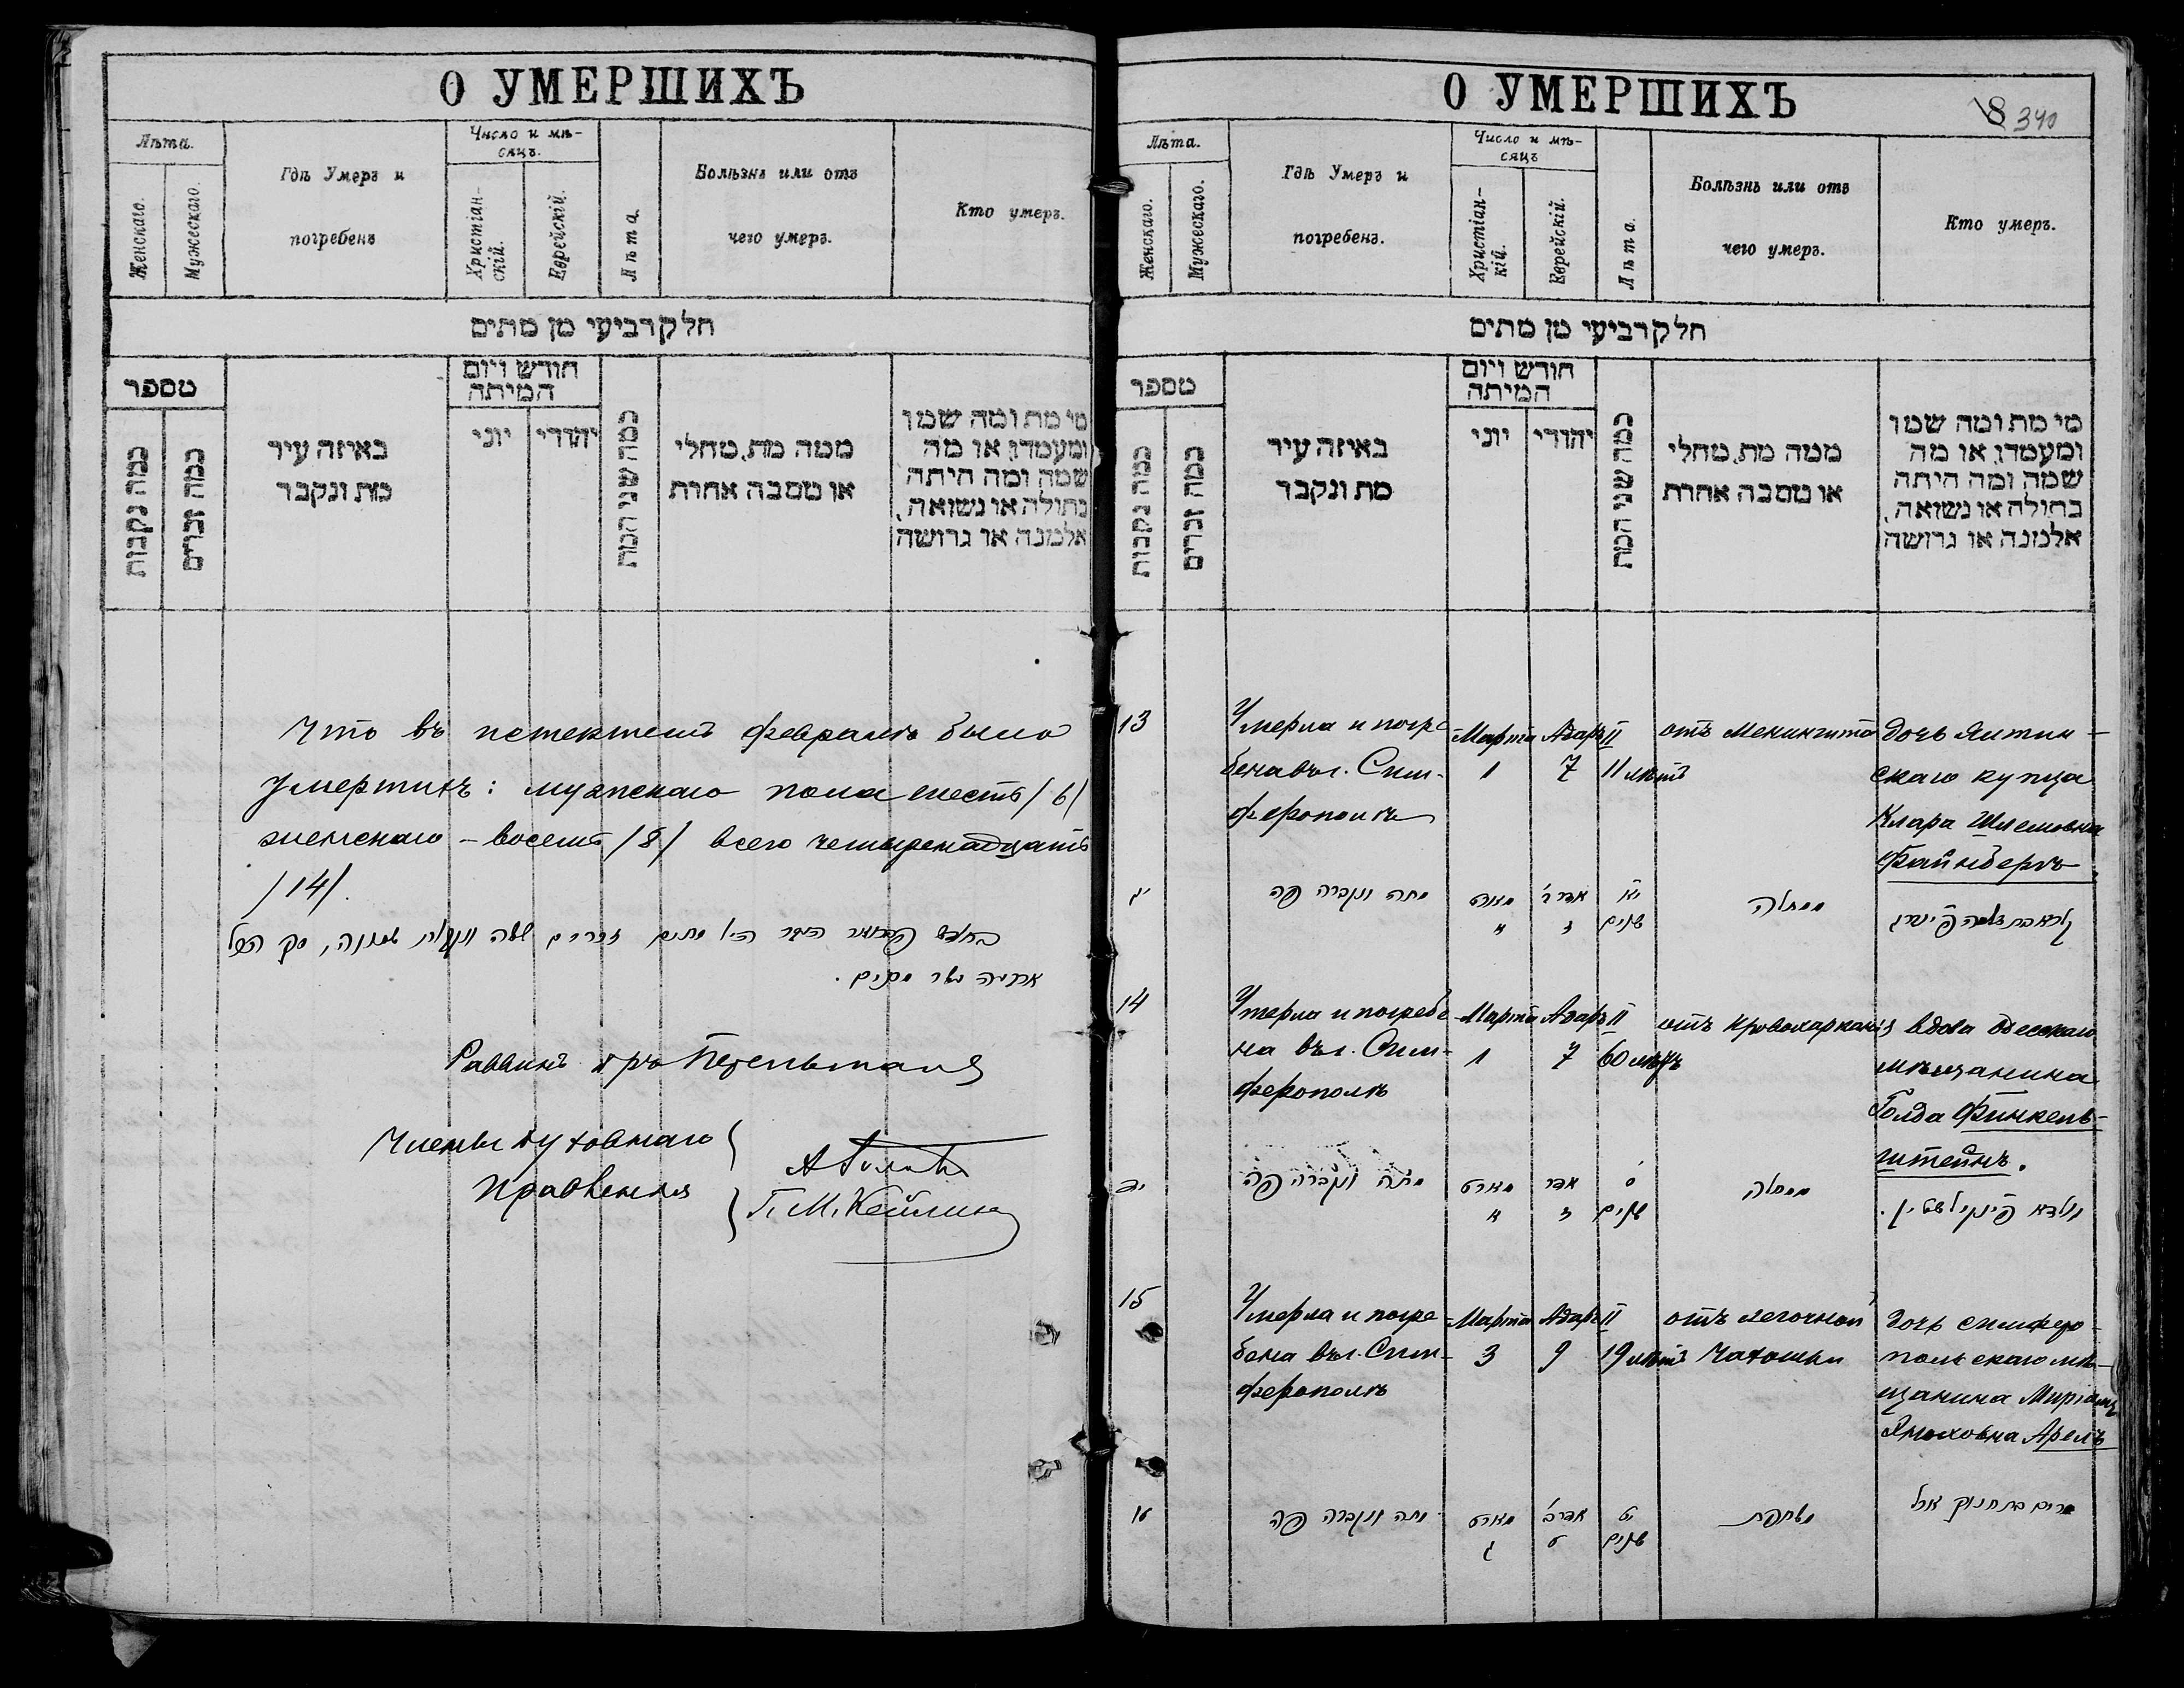 О УМЕРШИХЪ
Лѣта.
Женскаго.
Мужескаго.
Гдѣ Умеръ и
погребенъ
Число и мѣ-
сяцъ.
Христіан-
скій.
Еврейскій.
Лѣта.
Болѣзнь или отъ
чего умеръ.
Кто умеръ.
חלק רביעי מן מתים
מספר
כמה נקבות
כמה זכרים
באיזה עיר
מת ונקבר
חודש ויום
המיתה
יוני
יהודי
כמה שני המת
ממה מת, מחלי
או מסבה אחרת
מי מת ומה שמו
ומעמדו, או מה
שמה ומה היתה
בתולה או נשואה,
אלמנה או גרושה
Что въ истекшемъ февралѣ было
умершихъ: мужескаго пола шесть /6/
женскаго – восемь /8/ всего четыренадцать
/14/.
זכרים ששה
Раввинъ
Члены духовнаго
Правленія
О УМЕРШИХЪ
18 340
Лѣта.
Женскаго.
Мужескаго.
Гдѣ Умеръ и
погребенъ.
Число и мѣ-
сяцъ
Христіан-
кій.
Еврейскій.
Лѣта.
Болѣзнь или отъ
чего умеръ.
Кто умеръ.
חלק רביעי מן מתים
מספר
כמה נקבות
כמה זכרים
באיזה עיר
מת ונקבר
חודש ויום
המיתה
יוני
יהודי
כמה שני המת
ממה מת, מחלי
או מסבה אחרת
מי מת ומה שמו
ומעמדו, או מה
שמה ומה היתה
בתולה או נשואה,
אלמנה או גרושה
13
Умерла и погре-
бена въ г. Сим-
ферополѣ
Марта
1
Адаръ II
7
11 лѣтъ
отъ менингита
дочь Ялтин-
скаго купца
Клара Шлемовна
Файнбергъ.
יג
מתה ונקברה פה
מארט
א
אדר ב'
ז
יא
שנים
ממחלה
14
Умерла и погребе-
на въ г. Сим-
ферополѣ
Марта
1
Адаръ II
7
60 лѣтъ
отъ кровохарканія
вдова Одесскаго
мѣщанина
Голда Финкель-
штейнъ.
יד
מתה ונקברה פה
מארט
א
אדר
ז
ס
שנים
ממחלה
גולדא פינקילשטיין.
15
Умерла и погре-
бена въ г. Сим-
ферополѣ
Марта
3
Адаръ II
9
19 лѣтъ
отъ легочной
чахотки
дочь симферо-
польскаго мѣ-
щанина Миріамъ
Яноховна Арель
טו
מתה ונקברה פה
מארט
ג
אדר ב'
ט
יט
שנים
משחפת
מרים בת חנוך אrel